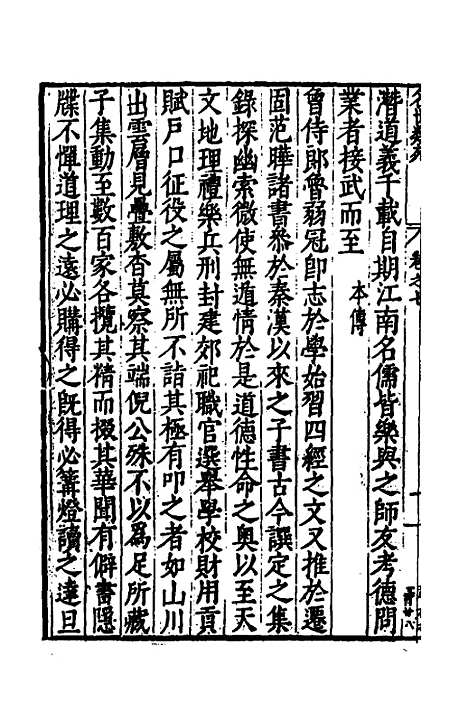 潛道義千載自期江南名儒皆樂與之師友考德問
業者接武而至　本傳
曾侍郎魯弱冠卽志於學始習四經之文又推於遷
固范曄諸書叅於秦漢以來之子書古今譔定之集
錄探幽索微使無遁情於是道德性命之奧以至天
文地理禮樂兵刑封建郊祀職官選舉學校財用貢
賦戸口征役之屬無所不詣其極有叩之者如山川
出雲層見疊敷杳莫察其端倪公殊不以爲足所藏
子集動至數百家各攬其精而掇其華聞有僻書隱
牒不憚道理之遠必購得之旣得必篝燈讀之達旦